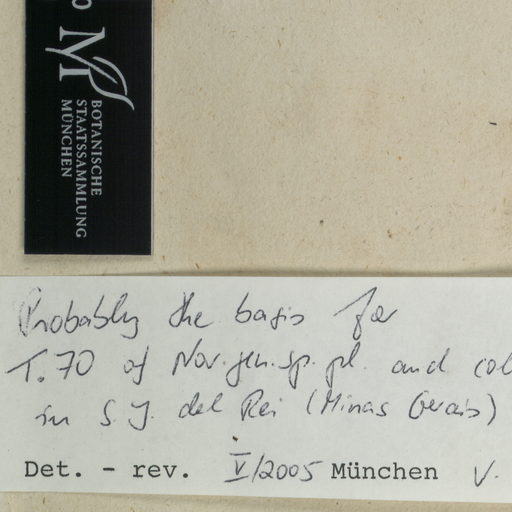 0
BOTANISCHE
STAATSSAMMLUNG
MÜNCHEN
Probably the basis for
T.70 of Nov. gen. sp. pl. and col
in S. J. del Rei (Minas Gerais)
Det. - rev. V/2005 München V.